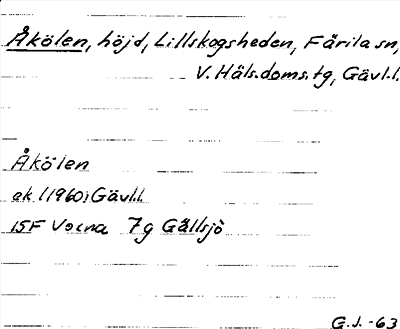 Åkölen, höjd, Lillskogsheden, Färila sn,
V. Häls.doms.tg, Gävl.l.
Åkölen
ek. (1960) Gävl.l.
15F Voxna 7g Gällsjö
G.J. -63